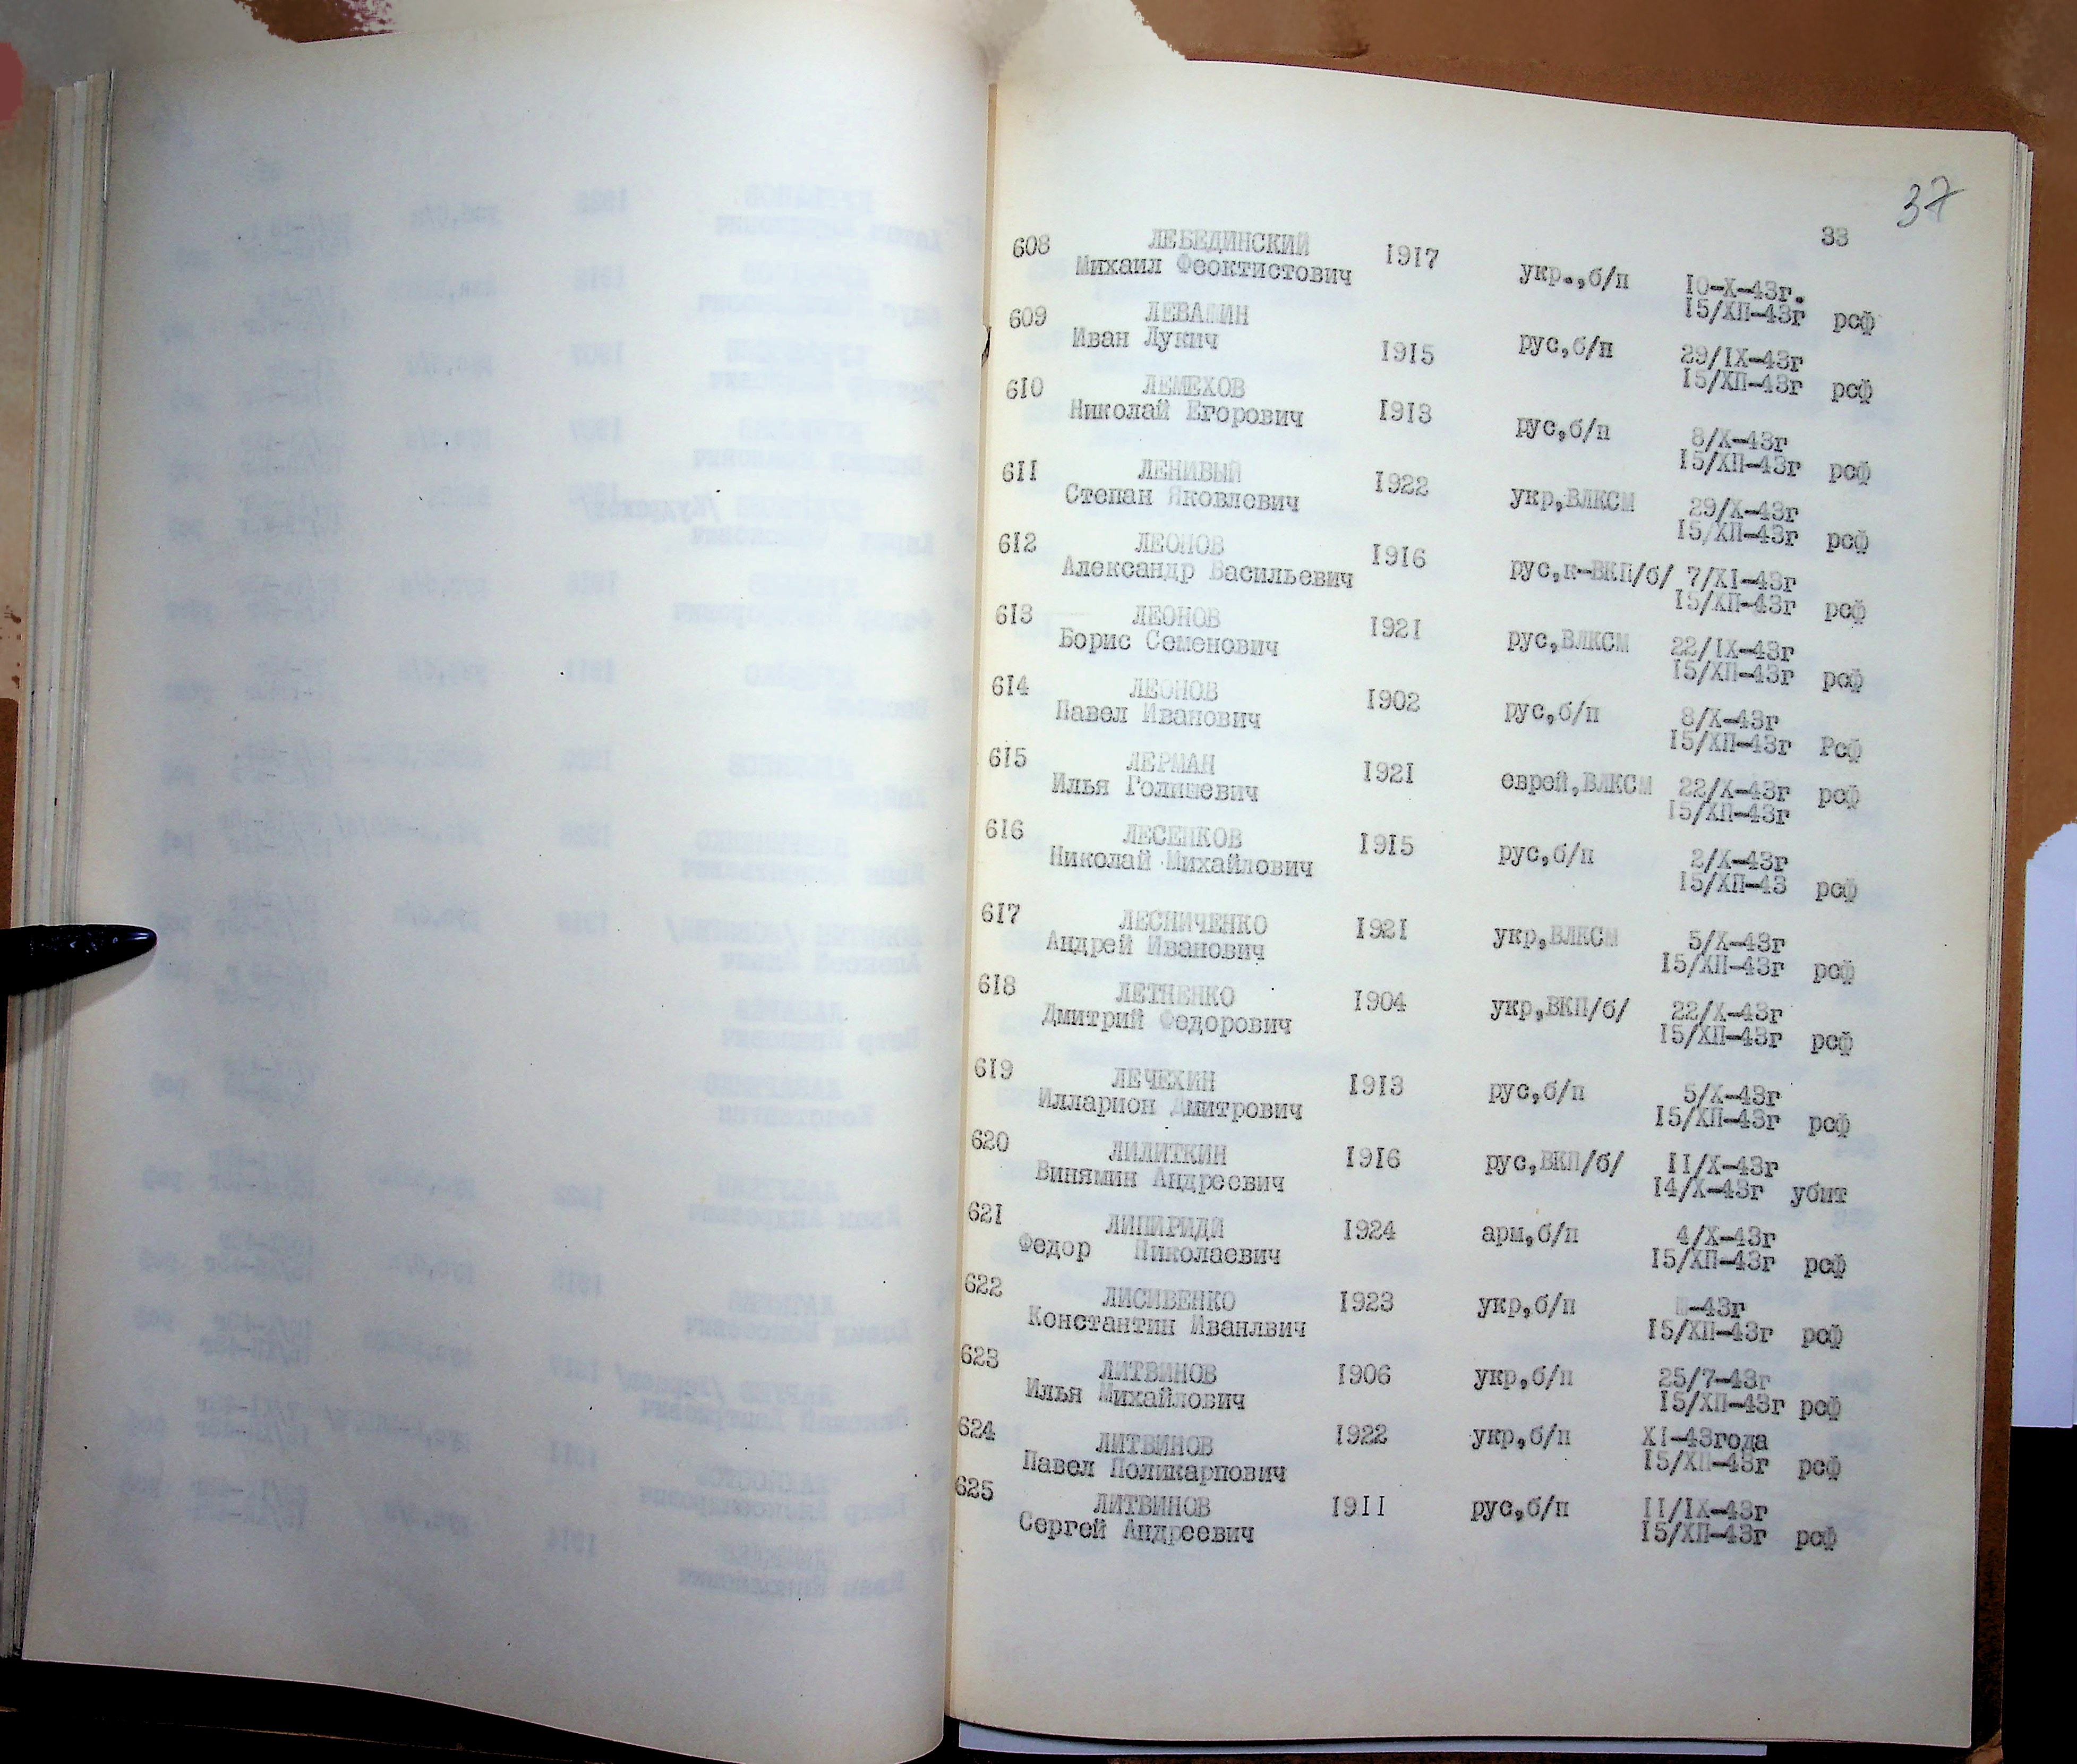 37
33
608 ЛЕБЕДИНСКИЙ 1917 укр.,б/п 10-X-43г.
Михаил Феоктистович 15/ХП-43г рсф
609 ЛЕВАШИН
Иван Лукич 1915 рус,б/п 29/IX-43г
15/ХП-43г рсф
610 ЛЕМЕХОВ
Николай Егорович 1913 рус,б/п 8/X-43г
15/ХП-43г рсф
611 ЛЕНИВЫЙ 1922 укр,ВЛКСМ 29/X-43г
Степан Яковлевич 15/ХП-43г рсф
612 ЛЕОНОВ 1916 рус,к-ВКП/б/ 7/XI-43г
Александр Васильевич 15/ХП-43г рсф
613 ЛЕОНОВ 1921 рус,ВЛКСМ 22/IX-43г
Борис Семенович 15/ХП-43г рсф
614 ЛЕОНОВ 1902 рус,б/п 8/X-43г
Павел Иванович 15/ХП-43г Рсф
615 ЛЕРМАН 1921 еврей,ВЛКСМ 22/X-43г рсф
Илья Голишевич 15/ХП-43г
616 ЛЕСЕНКОВ 1915 рус,б/п 2/X-43г
Николай Михайлович 15/ХП-43 рсф
617 ЛЕСНИЧЕНКО 1921 укр,ВЛКСМ 5/X-43г
Андрей Иванович 15/ХП-43г рсф
618 ЛЕТНЕНКО 1904 укр,ВКП/б/ 22/X-43г
Дмитрий Федорович 15/ХП-43г рсф
619 ЛЕЧЕХИН 1913 рус,б/п 5/X-43г
Илларион Дмитрович 15/ХП-43г рсф
620 ЛИЛИТКИН 1916 рус,ВКП/б/ 11/X-43г
Винямин Андреевич 14/X-43г убит
621 ЛИПИРИДИ 1924 арм,б/п 4/X-43г
Федор Николаевич 15/ХП-43г рсф
622 ЛИСИВЕНКО 1923 укр,б/п -43г
Константин Иванлвич 15/ХП-43г рсф
623 ЛИТВИНОВ 1906 укр,б/п 25/7-43г
Илья Михайлович 15/ХП-43г рсф
624 ЛИТВИНОВ 1922 укр,б/п XI-43года
Павел Поликарпович 15/ХП-43г рсф
625 ЛИТВИНОВ 1911 рус,б/п 11/IX-43г
Сергей Андреевич 15/ХП-43г рсф